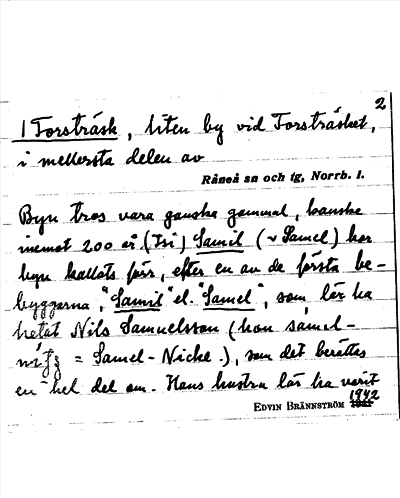 2
1 Forsträsk, liten by vid Forsträsket,
i mellersta delen av
Råneå sn och tg, Norrb. l.
Byn tros vara ganska gammal, kanske
inemot 200 år. Samil (~ Samel) har
byn kallats förr, efter en av de första be-
byggarna, "Samil" el. "Samel", som lär ha
hetat Nils Samuelsson (han
= Samel-Nicke.), som det berättas
en hel del om. Hans hustru lär ha varit
EDVIN BRÄNNSTRÖM 1942